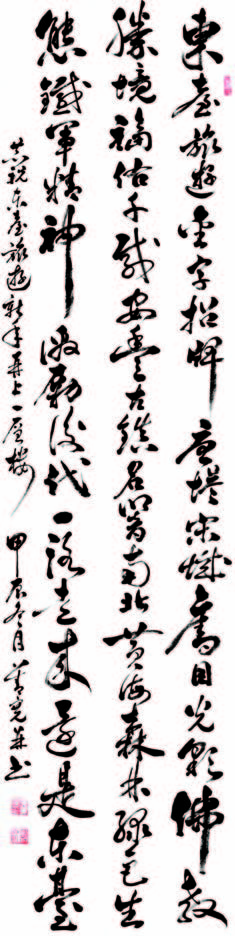 東臺旅遊金字招牌唐塔宋城奪目光彩佛教
勝境福佑千載安豐古鎮名響南北黃海森林綠色生
態鐵軍精神激勵後代一路走來還是東臺
共祝东臺旅遊新年再上一層樓 甲辰冬月